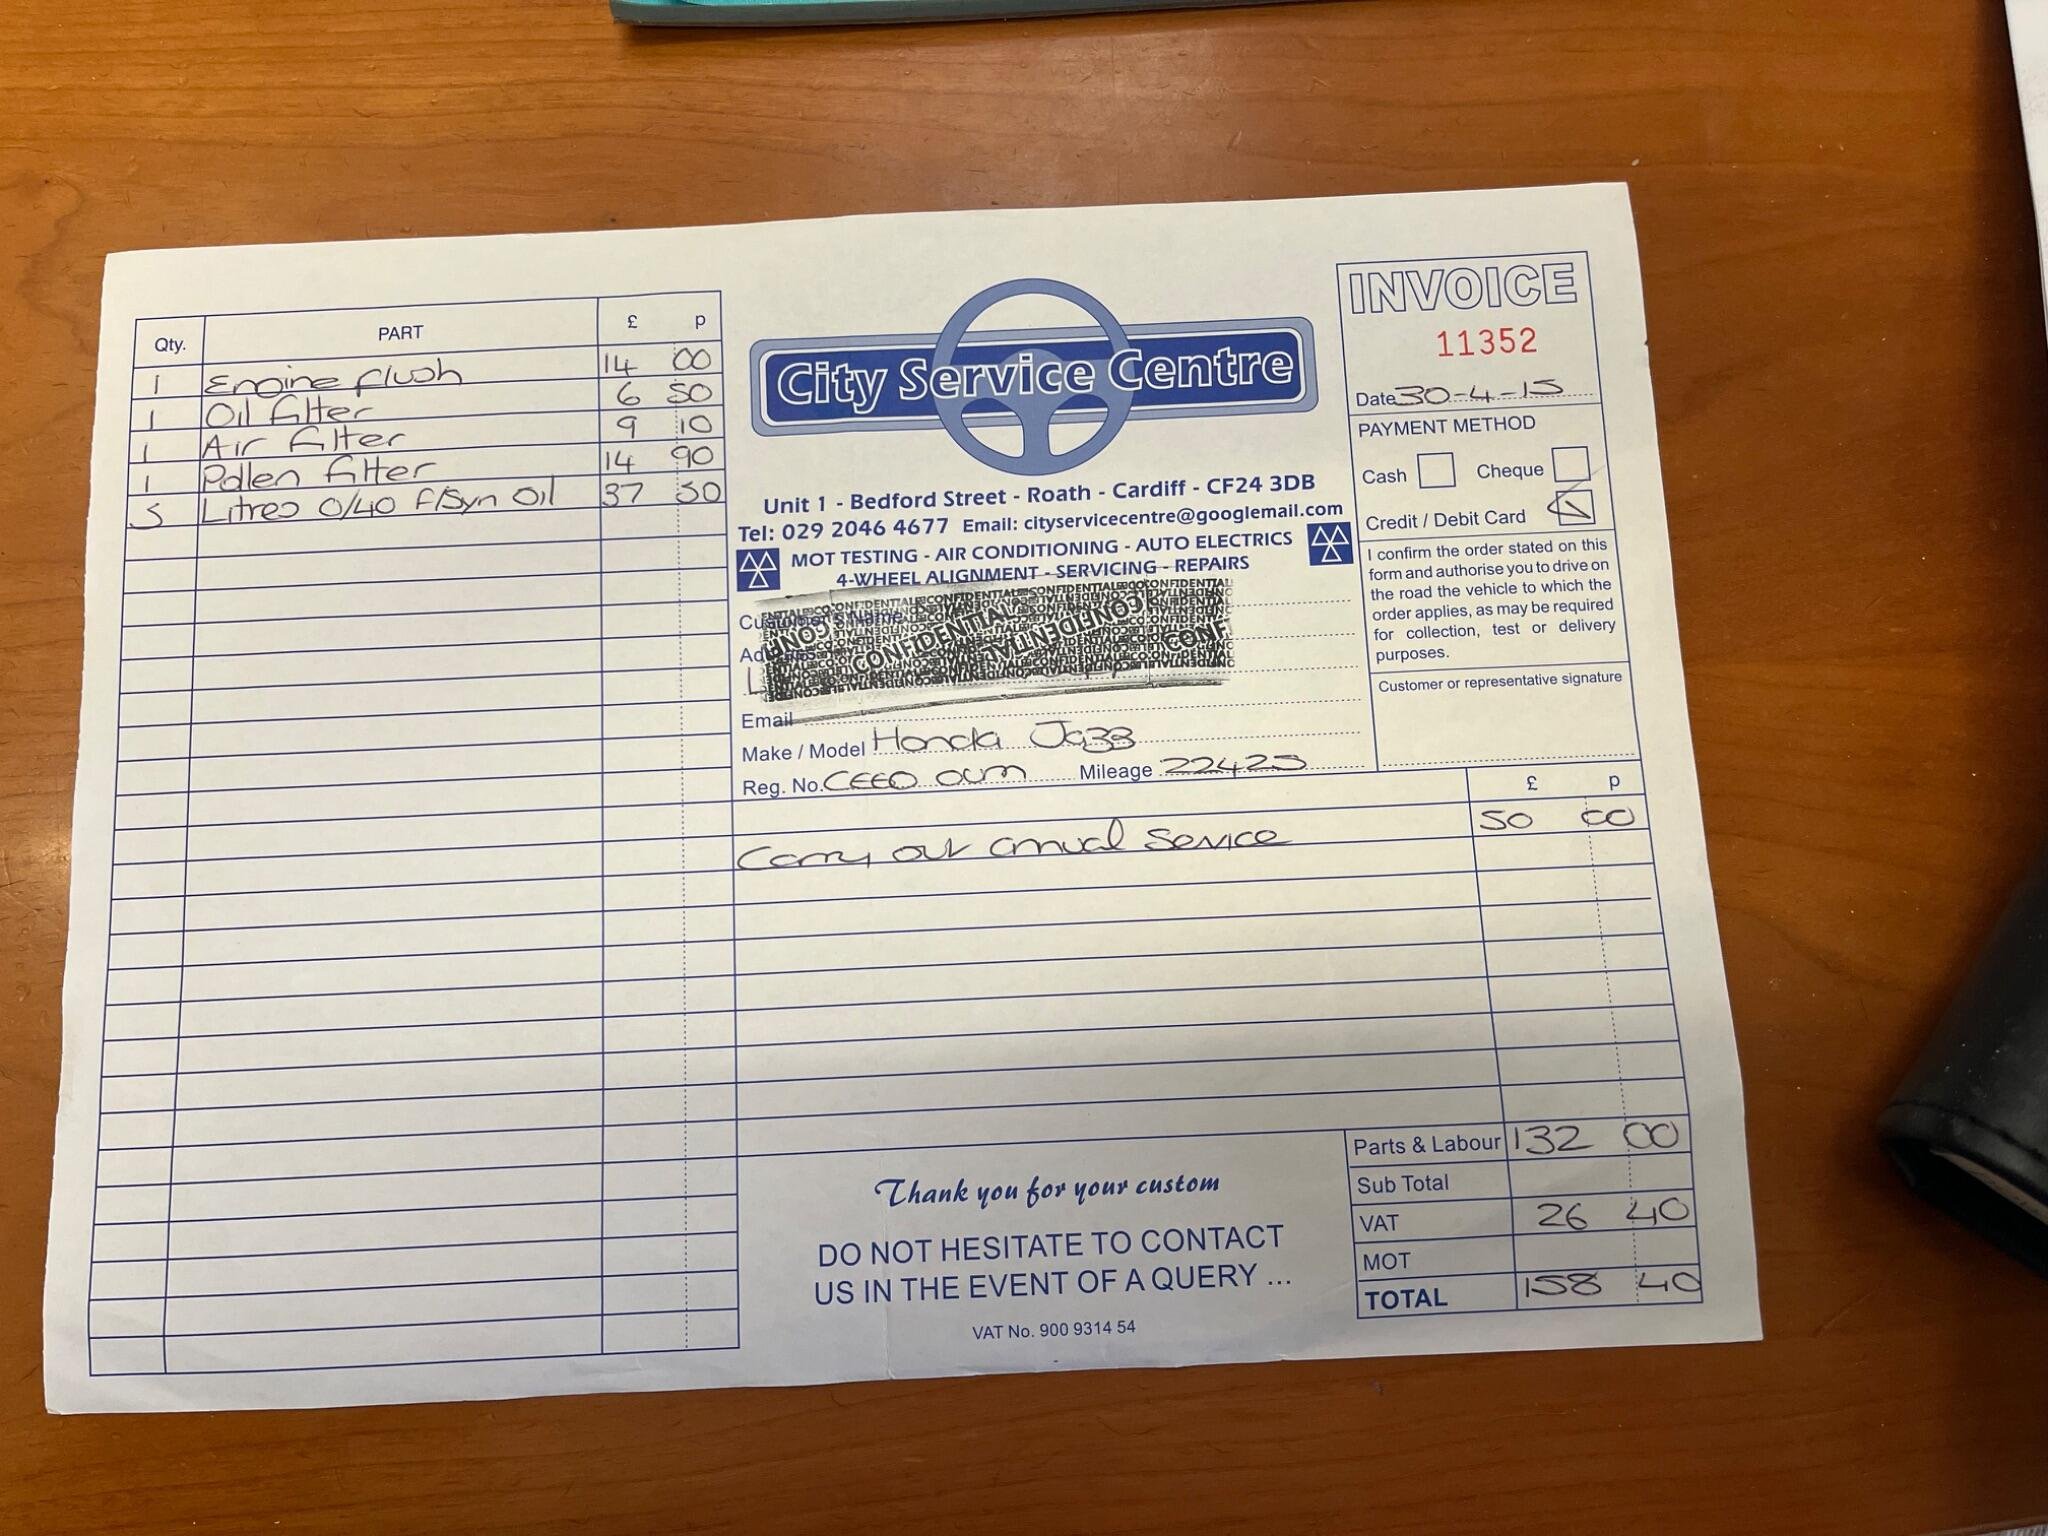 Qty. PART £ p
1 Engine flush 14 00
1 Oil filter 6 50
1 Air filter 9 10
1 Pollen filter 14 90
5 Litres 0/40 F/Syn Oil 37 50
City Service Centre
Unit 1 - Bedford Street - Roath - Cardiff - CF24 3DB
Tel: 029 2046 4677 Email: cityservicecentre@googlemail.com
MOT TESTING - AIR CONDITIONING - AUTO ELECTRICS
4-WHEEL ALIGNMENT - SERVICING - REPAIRS
Customer's Name
Address
CONFIDENTIAL
Email
Make / Model Honda Jazz
Reg. No. CEEO OUM Mileage 22425
INVOICE
11352
Date 30-4-15
PAYMENT METHOD
Cash Cheque
Credit / Debit Card
I confirm the order stated on this
form and authorise you to drive on
the road the vehicle to which the
order applies, as may be required
for collection, test or delivery
purposes.
Customer or representative signature
£ p
Carry out annual service 50 00
Parts & Labour 132 00
Sub Total
VAT 26 40
MOT
TOTAL 158 40
Thank you for your custom
DO NOT HESITATE TO CONTACT
US IN THE EVENT OF A QUERY ...
VAT No. 900 9314 54